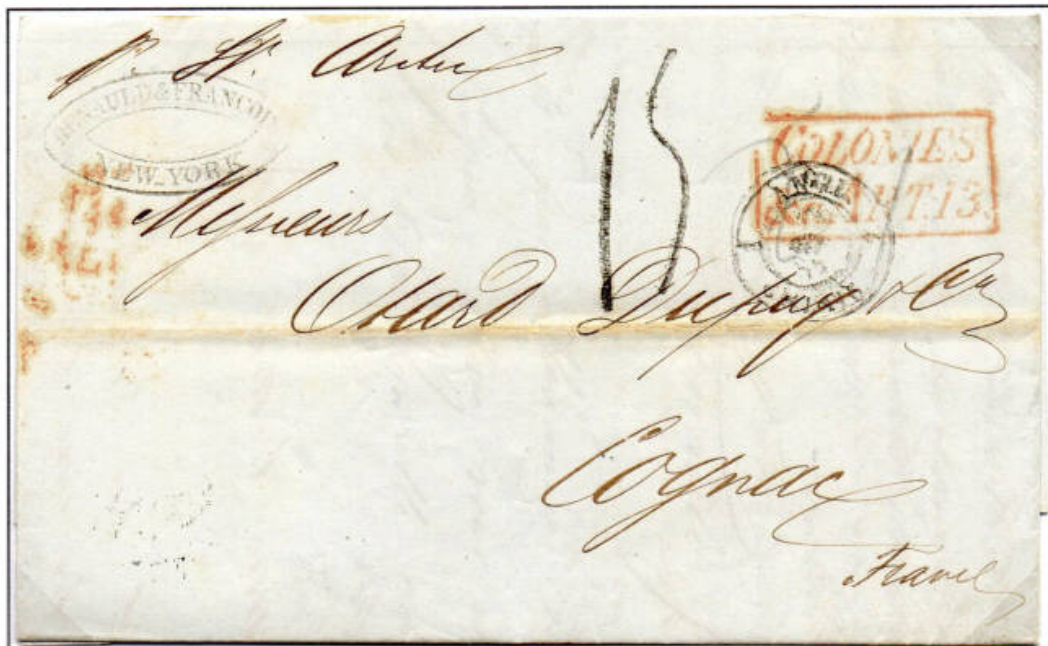 p. St. Arctic
RENAULD & FRANCOIS
NEW-YORK
15
COLONIES
ART. 13.
ANGL.
Messieurs
Otard Dupuy & Co
Cognac
France